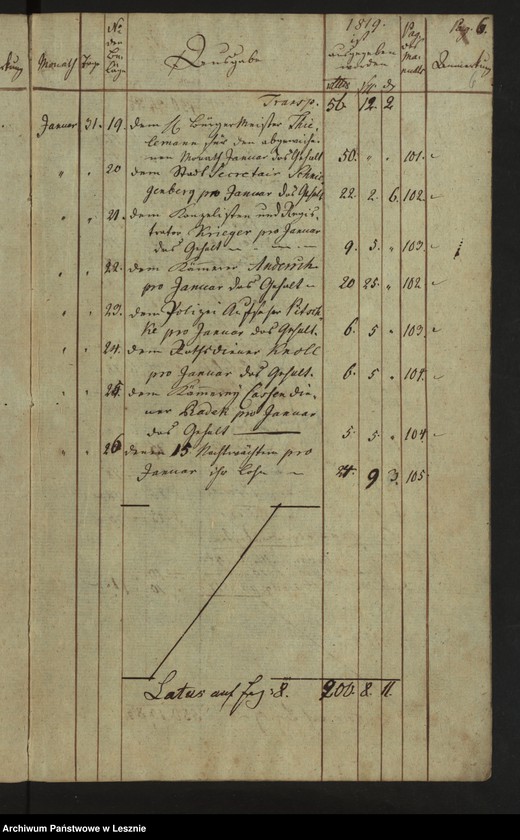 1819.
Pag. 6.
Monath Tag No der Bei lage Ausgabe ist ausgegeben worden Pag. des Ma nuals Anmerkung
Transp. 56 12 2
Januar 31. 19. dem H Bürger Meister Thie-
lemann für den abgewiche-
nen Monath Januar das Gehalt 50. " " 101.
" " 20 dem Stadt Secretair
pro Januar das Gehalt 22. 2. 6. 102.
" " 21. dem Kanzelisten und Regis-
trator Krieger pro Januar
das Gehalt 9. 5. " 103.
" " 22. dem Kämerer
pro Januar das Gehalt 20 25. " 102.
" " 23. dem Polizei Aufseher
pro Januar das Gehalt. 6. 5 " 103.
" " 24. dem Rathsdiener Knoll
pro Januar das Gehalt. 6. 5 " 104.
" " 25. dem Kämmerey Cassendie-
ner Radek pro Januar
das Gehalt 5. 5. " 104.
" " 26 denen 15 Nachtwächtern pro
Januar ihr Lohn 24. 9 3. 105.
Latus auf pag: 8. 200. 8. 11.
Archiwum Państwowe w Lesznie